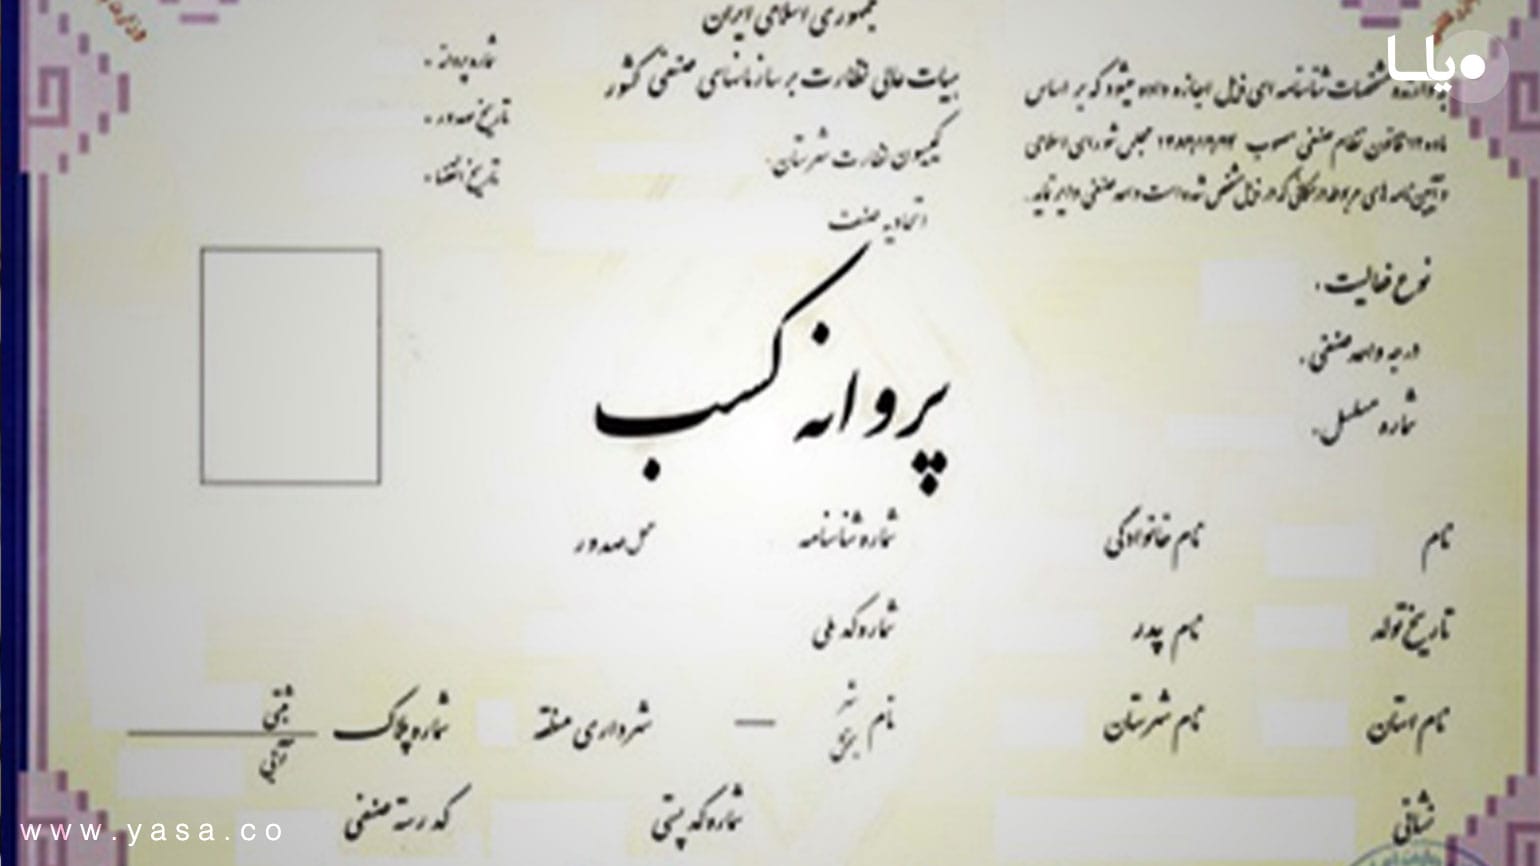 جمهوری اسلامی ایران
هیات عالی نظارت بر سازمانهای صنفی کشور
کمیسیون نظارت شهرستان:
اتحادیه صنف
شماره پروانه :
تاریخ صدور :
تاریخ انقضا :
یاسا
به دارنده مشخصات شناسنامه ای ذیل اجازه داده میشود که بر اساس
ماده ۱۲ قانون نظام صنفی مصوب ۱۳۸۲/۱۲/۲۴ مجلس شورای اسلامی
و آیین نامه های مربوطه در مکانی که در ذیل مشخص شده است واحد صنفی دایر نماید.
نوع فعالیت :
درجه واحد صنفی :
شماره مسلسل :
پروانه کسب
نام نام خانوادگی شماره شناسنامه محل صدور
تاریخ تولد نام پدر شماره کد ملی
نام استان نام شهرستان نام شهر بخش — شهرداری منطقه شماره پلاک ثبتی
نشانی شماره کد پستی کد رسته صنفی
www.yasa.co